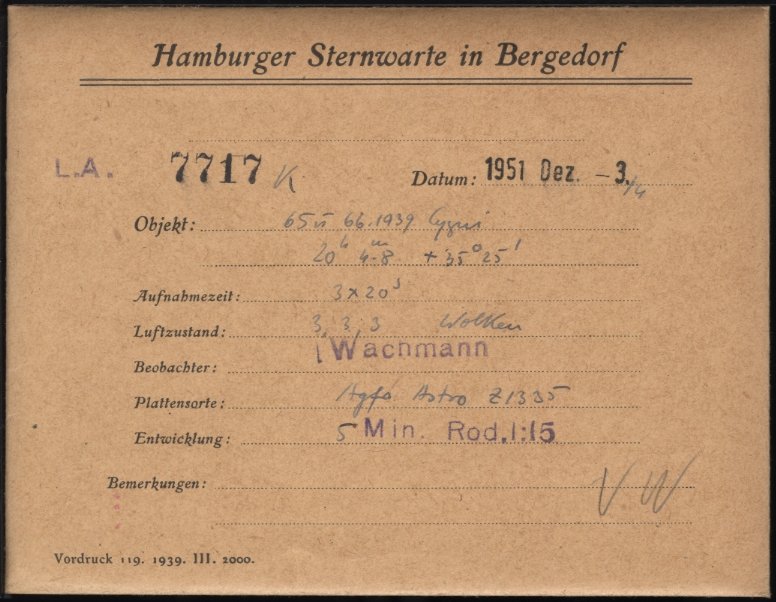 Hamburger Sternwarte in Bergedorf
L.A. 7717 K Datum: 1951 Dez. - 3./4
Objekt: 65 u 66.1939 Cygni
20h 4m.8 +35° 25'
Aufnahmezeit: 3x20s
Luftzustand: 3, 3, 3 Wolken
Beobachter: Wachmann
Plattensorte: Agfa Astro Z1335
Entwicklung: 5 Min. Rod.1:15
Bemerkungen: V W
Vordruck 119. 1939. III. 2000.